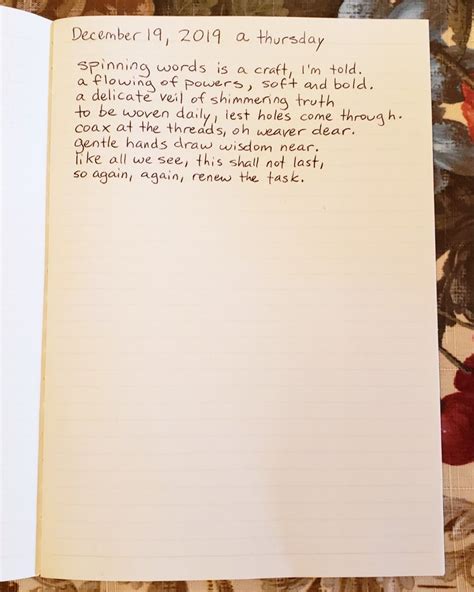 December 19, 2019 a thursday
spinning words is a craft, I'm told.
a flowing of powers, soft and bold.
a delicate veil of shimmering truth
to be woven daily, lest holes come through.
coax at the threads, oh weaver dear.
gentle hands draw wisdom near.
like all we see, this shall not last,
so again, again, renew the task.